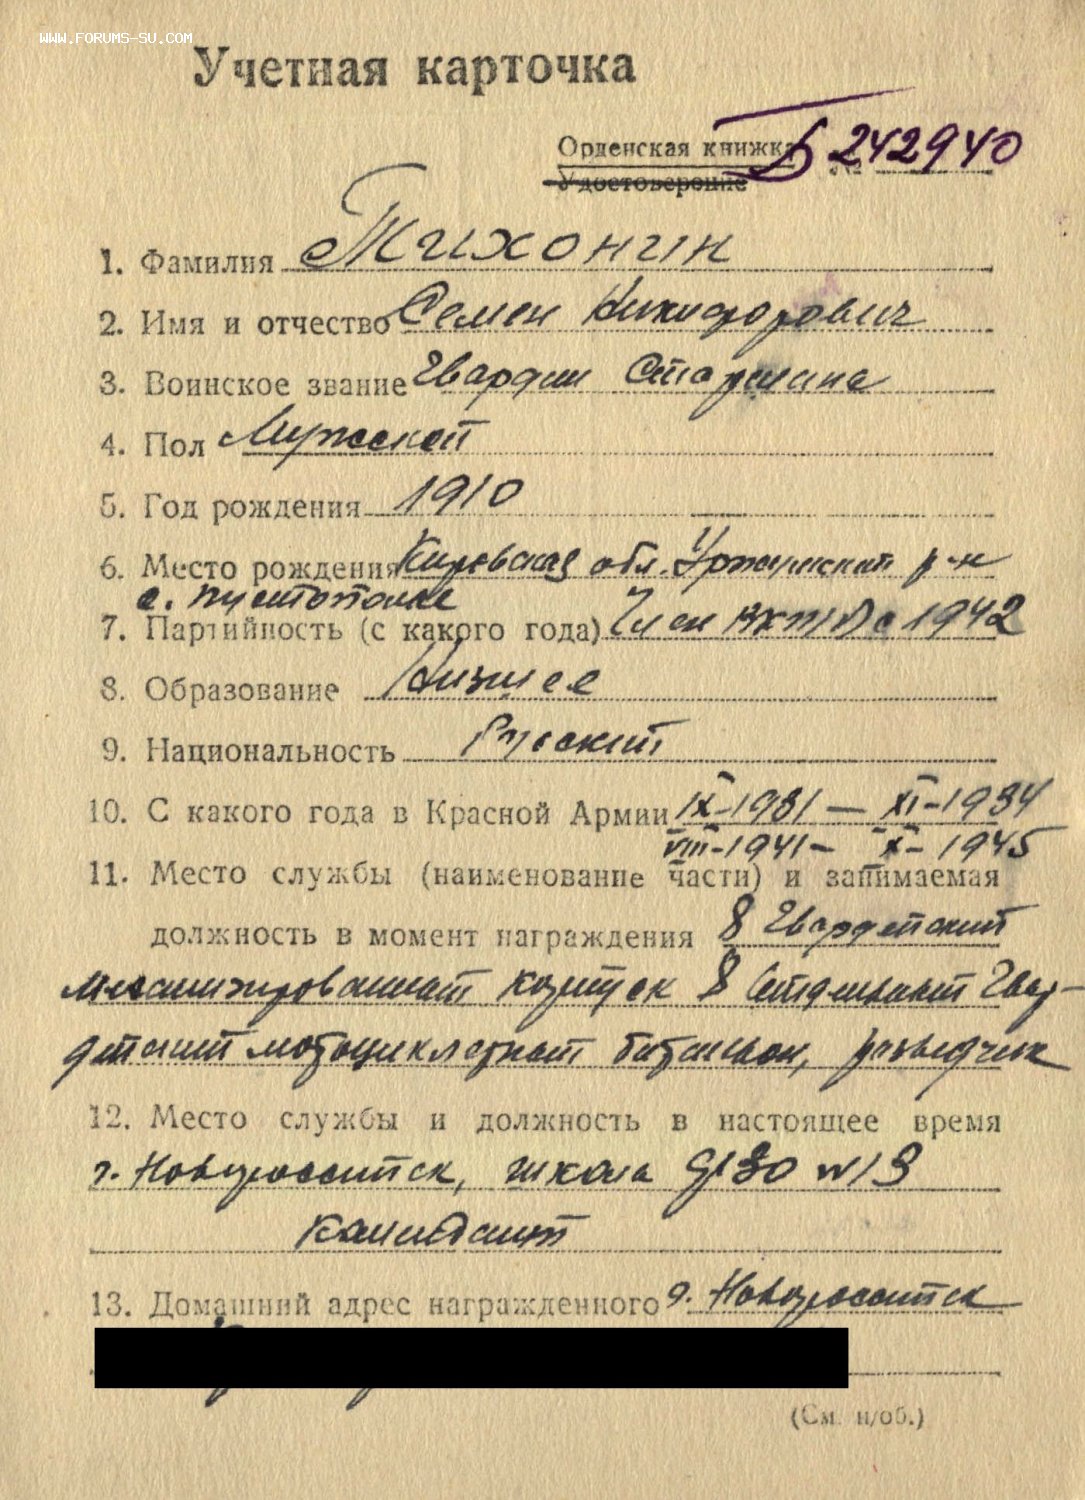 WWW.FORUMS-SU.COM
Учетная карточка
Орденская книжка Б № 242940
Удостоверение
1. Фамилия Тихонин
2. Имя и отчество Семен Никифорович
3. Воинское звание Гвардии Старшина
4. Пол Мужской
5. Год рождения 1910
6. Место рождения Кировская обл. Уржумский р-н
с.
7. Партийность (с какого года) Член ВКП/б/ с 1942
8. Образование Низшее
9. Национальность Русский
10. С какого года в Красной Армии IX-1931 — XI-1934
VIII-1941 - X- 1945
11. Место службы (наименование части) и занимаемая
должность в момент награждения 8 Гвардейский
механизированный корпус 8 Отдельный Гвар-
дейский мотоциклетный батальон, разведчик
12. Место службы и должность в настоящее время
г. Новороссийск, школа № 13
комендант
13. Домашний адрес награжденного г. Новороссийск
(См. н/об.)